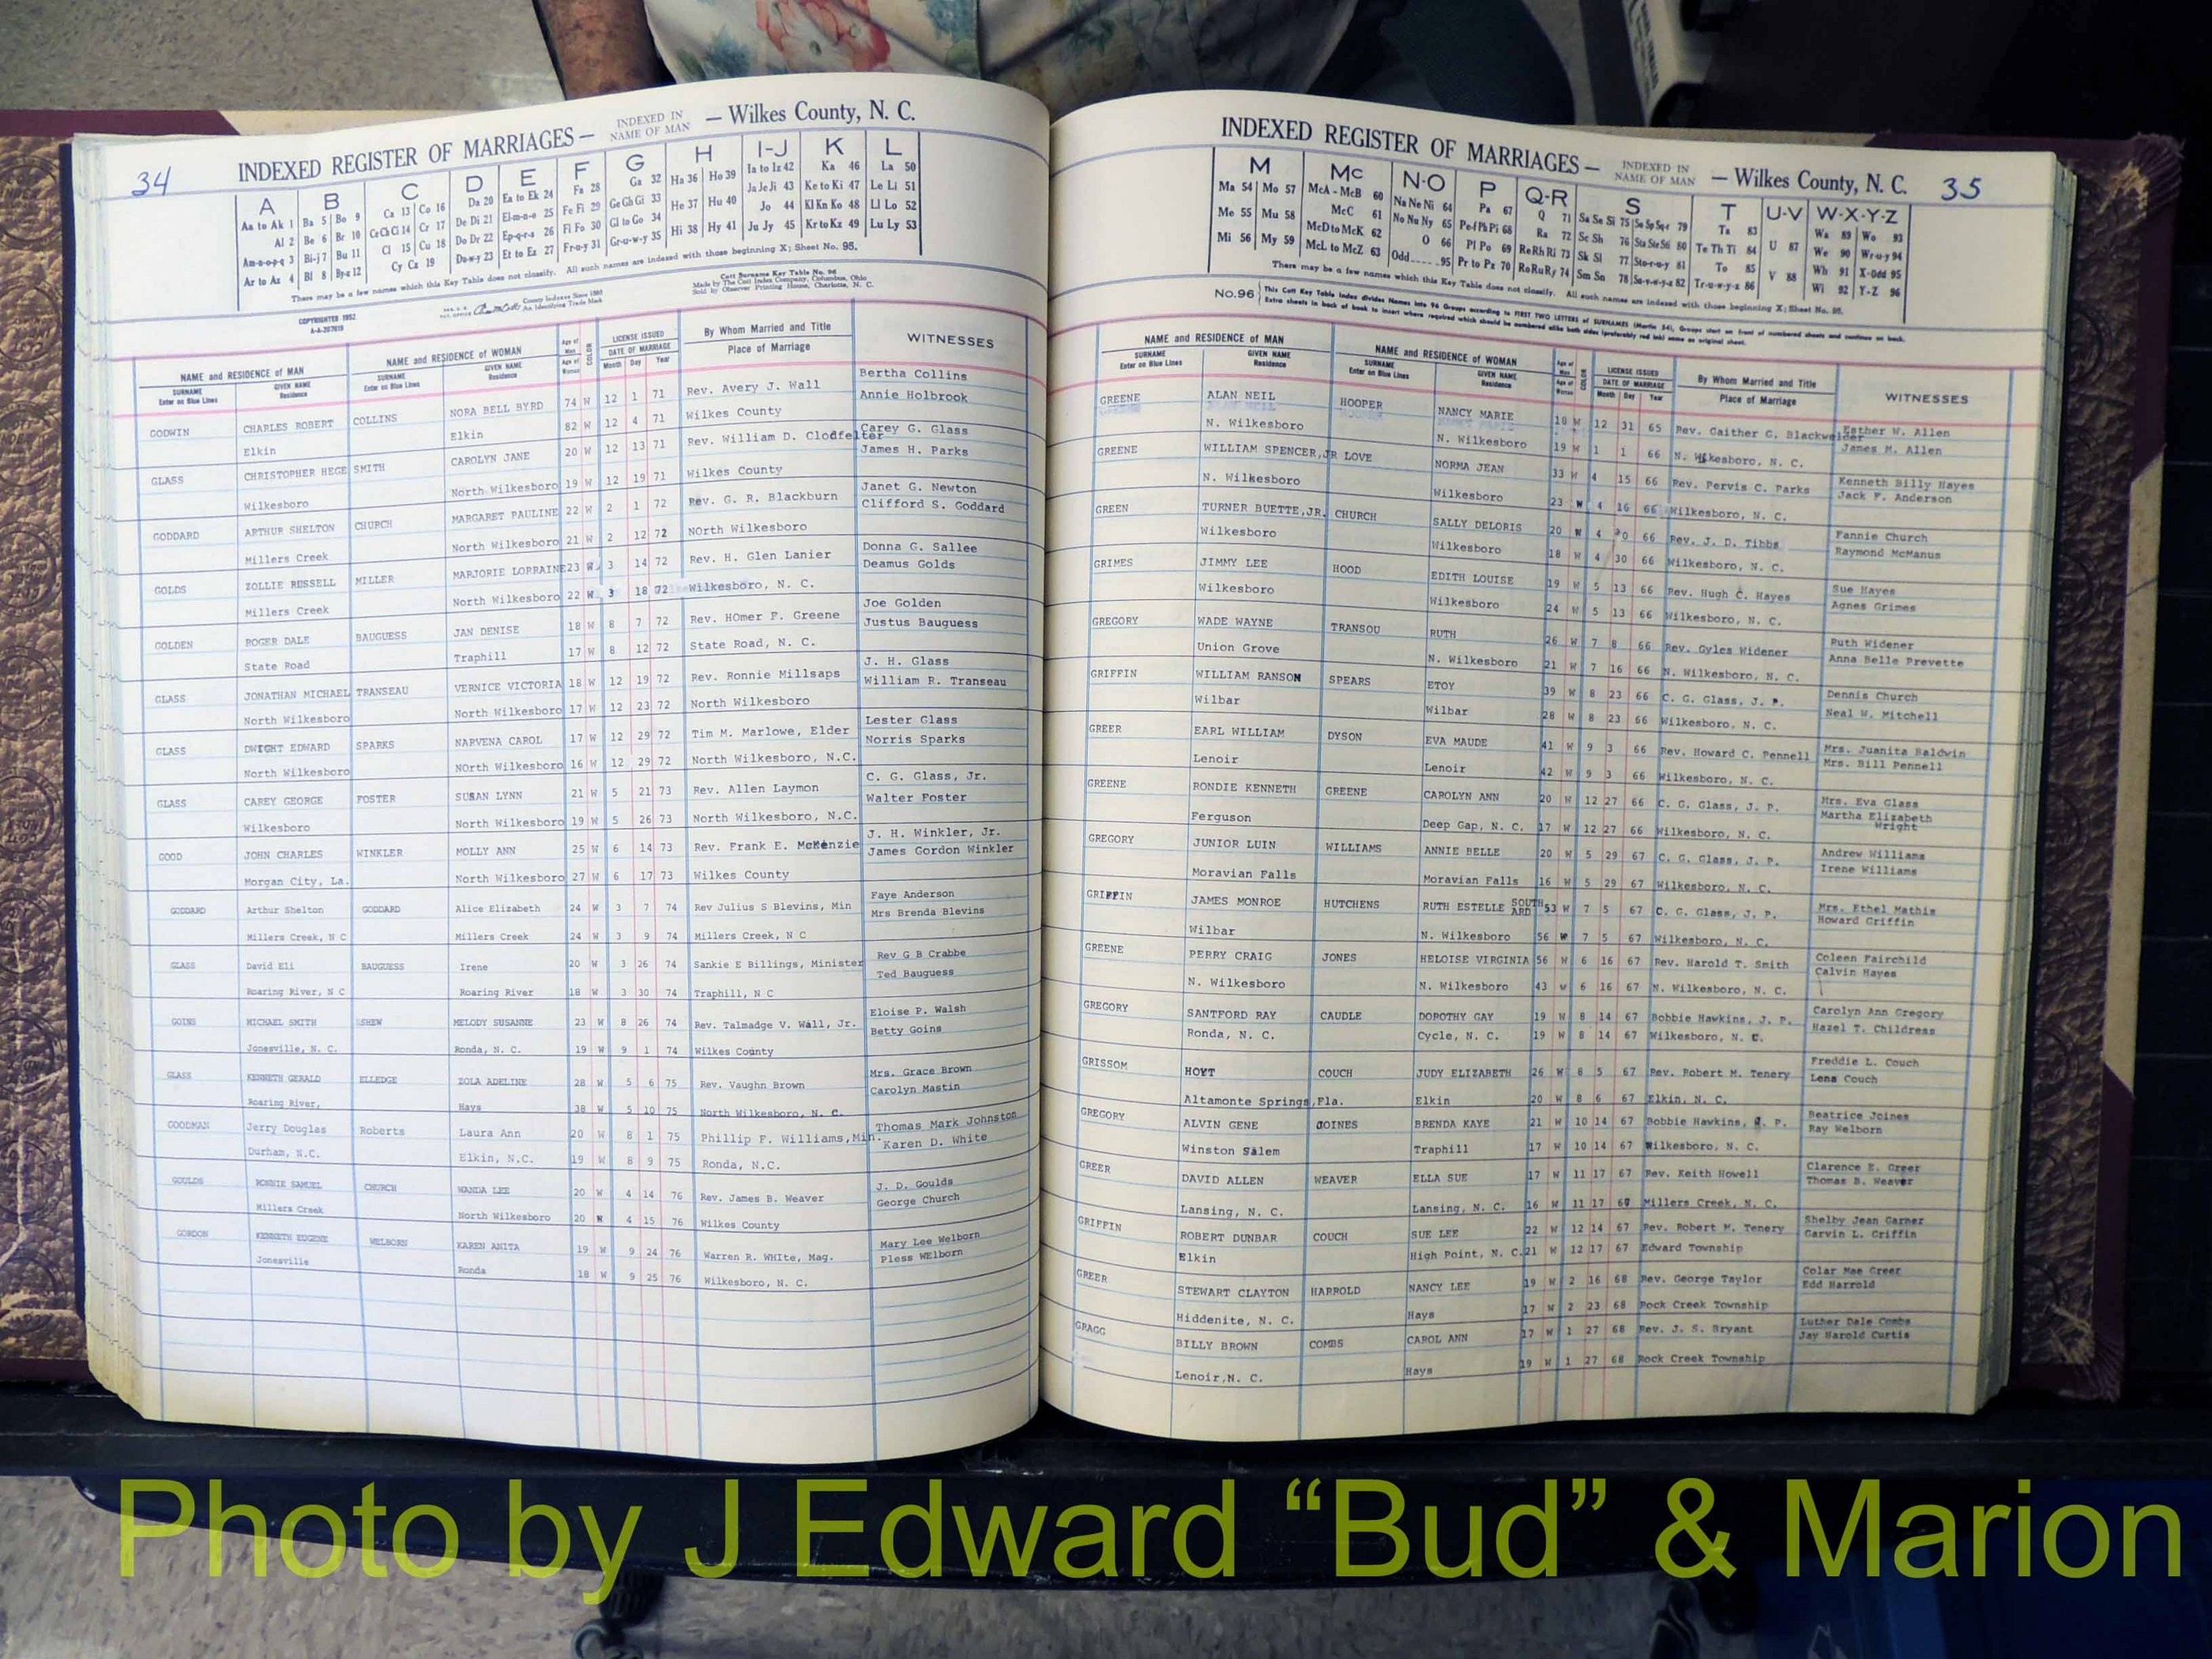 34
INDEXED REGISTER OF MARRIAGES — INDEXED IN NAME OF MAN — Wilkes County, N. C.
A B C D E F G H I-J K L
Aa to Ak 1 Ba 5 Bo 9 Ca 13 Co 16 Da 20 Ea to Ek 24 Fa 28 Ga 32 Ha 36 Ho 39 Ia to Iz 42 Ka 46 La 50
Al 2 Be 6 Br 10 Ce Ch Ci 14 Cr 17 De Di 21 El-m-n-o 25 Fe Fi 29 Ge Gh Gi 33 He 37 Hu 40 Ja Je Ji 43 Ke to Ki 47 Le Li 51
Am-n-o-p-q 3 Bi-j 7 Bu 11 Cl 15 Cu 18 Do Dr 22 Ep-q-r-s 26 Fl Fo 30 Gl to Go 34 Hi 38 Hy 41 Jo 44 Kl Kn Ko 48 Ll Lo 52
Ar to Az 4 Bl 8 By-z 12 Cy Cz 19 Du-w-y 23 Et to Ez 27 Fr-u-y 31 Gr-u-w-y 35 Ju Jy 45 Kr to Kz 49 Lu Ly 53
There may be a few names which this Key Table does not classify. All such names are indexed with those beginning X; Sheet No. 95.
COPYRIGHTED 1952
A-A-207019
County Indexes Since 1888
An Identifying Trade Mark
Cott Surname Key Table No. 96
Made by The Cott Index Company, Columbus, Ohio
Sold by Observer Printing House, Charlotte, N. C.
NAME and RESIDENCE of MAN NAME and RESIDENCE of WOMAN Age of Man COLOR LICENSE ISSUED By Whom Married and Title WITNESSES
SURNAME GIVEN NAME SURNAME GIVEN NAME Age of Woman DATE OF MARRIAGE Place of Marriage
Enter on Blue Lines Residence Enter on Blue Lines Residence Month Day Year
GODWIN CHARLES ROBERT COLLINS NORA BELL BYRD 74 W 12 1 71 Rev. Avery J. Wall Bertha Collins
Elkin Elkin 82 W 12 4 71 Wilkes County Annie Holbrook
GLASS CHRISTOPHER HEGE SMITH CAROLYN JANE 20 W 12 13 71 Rev. William D. Clodfelter Carey G. Glass
Wilkesboro North Wilkesboro 19 W 12 19 71 Wilkes County James H. Parks
GODDARD ARTHUR SHELTON CHURCH MARGARET PAULINE 22 W 2 1 72 Rev. G. R. Blackburn Janet G. Newton
Millers Creek North Wilkesboro 21 W 2 12 72 NOrth Wilkesboro Clifford S. Goddard
GOLDS ZOLLIE RUSSELL MILLER MARJORIE LORRAINE 23 W 3 14 72 Rev. H. Glen Lanier Donna G. Sallee
Millers Creek North Wilkesboro 22 W 3 18 72 Wilkesboro, N. C. Deamus Golds
GOLDEN ROGER DALE BAUGUESS JAN DENISE 18 W 8 7 72 Rev. HOmer F. Greene Joe Golden
State Road Traphill 17 W 8 12 72 State Road, N. C. Justus Bauguess
GLASS JONATHAN MICHAEL TRANSEAU VERNICE VICTORIA 18 W 12 19 72 Rev. Ronnie Millsaps J. H. Glass
North Wilkesboro North Wilkesboro 17 W 12 23 72 North Wilkesboro William R. Transeau
GLASS DWIGHT EDWARD SPARKS NARVENA CAROL 17 W 12 29 72 Tim M. Marlowe, Elder Lester Glass
North Wilkesboro NOrth Wilkesboro 16 W 12 29 72 North Wilkesboro, N.C. Norris Sparks
GLASS CAREY GEORGE FOSTER SUSAN LYNN 21 W 5 21 73 Rev. Allen Laymon C. G. Glass, Jr.
Wilkesboro North Wilkesboro 19 W 5 26 73 North Wilkesboro, N.C. Walter Foster
GOOD JOHN CHARLES WINKLER MOLLY ANN 25 W 6 14 73 Rev. Frank E. McKenzie J. H. Winkler, Jr.
Morgan City, La. North Wilkesboro 27 W 6 17 73 Wilkes County James Gordon Winkler
GODDARD Arthur Shelton GODDARD Alice Elizabeth 24 W 3 7 74 Rev Julius S Blevins, Min Faye Anderson
Millers Creek, N C Millers Creek 24 W 3 9 74 Millers Creek, N C Mrs Brenda Blevins
GLASS David Eli BAUGUESS Irene 20 W 3 26 74 Sankie E Billings, Minister Rev G B Crabbe
Roaring River, N C Roaring River 18 W 3 30 74 Traphill, N C Ted Bauguess
GOINS MICHAEL SMITH SHEW MELODY SUSANNE 23 W 8 26 74 Rev. Talmadge V. Wall, Jr. Eloise P. Walsh
Jonesville, N. C. Ronda, N. C. 19 W 9 1 74 Wilkes County Betty Goins
GLASS KENNETH GERALD ELLEDGE ZOLA ADELINE 28 W 5 6 75 Rev. Vaughn Brown Mrs. Grace Brown
Roaring River, Hays 38 W 5 10 75 North Wilkesboro, N. C. Carolyn Mastin
GOODMAN Jerry Douglas Roberts Laura Ann 20 W 8 1 75 Phillip F. Williams, Min. Thomas Mark Johnston
Durham, N.C. Elkin, N.C. 19 W 8 9 75 Ronda, N.C. Karen D. White
GOULDS RONNIE SAMUEL CHURCH WANDA LEE 20 W 4 14 76 Rev. James B. Weaver J. D. Goulds
Millers Creek North Wilkesboro 20 W 4 15 76 Wilkes County George Church
GORDON KENNETH EUGENE WELBORN KAREN ANITA 19 W 9 24 76 Warren R. WHite, Mag. Mary Lee Welborn
Jonesville Ronda 18 W 9 25 76 Wilkesboro, N. C. Pless WElborn
INDEXED REGISTER OF MARRIAGES — INDEXED IN NAME OF MAN — Wilkes County, N. C. 35
M Mc N-O P Q-R S T U-V W-X-Y-Z
Ma 54 Mo 57 McA - McB 60 Na Ne Ni 64 Pa 67 Q 71 Sa Se Si 75 So Sp Sq-r 79 Ta 83 Wa 89 Wo 93
Me 55 Mu 58 McC 61 No Nu Ny 65 Pe-f Ph Pi 68 Ra 72 Sc Sh 76 Sta Ste Sti 80 Te Th Ti 84 U 87 We 90 Wr-u-y 94
Mi 56 My 59 McD to McK 62 O 66 Pl Po 69 Re Rh Ri 73 Sk Sl 77 Sto-r-u-y 81 To 85 V 88 Wh 91 X-Odd 95
McL to McZ 63 Odd 95 Pr to Pz 70 Ro Ru Ry 74 Sm Sn 78 Su-v-w-y-z 82 Tr-u-w-y-z 86 Wi 92 Y-Z 96
There may be a few names which this Key Table does not classify. All such names are indexed with those beginning X; Sheet No. 95.
No.96 This Cott Key Table Index divides Names into 96 Groups according to FIRST TWO LETTERS of SURNAMES (Martin 54), Groups start on front of numbered sheets and continue on back.
Extra sheets in back of book to insert where required which should be numbered alike both sides (preferably red ink) same as original sheet.
NAME and RESIDENCE of MAN NAME and RESIDENCE of WOMAN Age of Man COLOR LICENSE ISSUED By Whom Married and Title WITNESSES
SURNAME GIVEN NAME SURNAME GIVEN NAME Age of Woman DATE OF MARRIAGE Place of Marriage
Enter on Blue Lines Residence Enter on Blue Lines Residence Month Day Year
GREENE ALAN NEIL HOOPER NANCY MARIE 18 W 12 31 65 Rev. Gaither G. Blackwelder Esther W. Allen
N. Wilkesboro N. Wilkesboro 19 W 1 1 66 N. Wilkesboro, N. C. James M. Allen
GREENE WILLIAM SPENCER, JR LOVE NORMA JEAN 33 W 4 15 66 Rev. Pervis C. Parks Kenneth Billy Hayes
N. Wilkesboro Wilkesboro 23 W 4 16 66 Wilkesboro, N. C. Jack F. Anderson
GREEN TURNER BUETTE, JR. CHURCH SALLY DELORIS 20 W 4 30 66 Rev. J. D. Tibbs Fannie Church
Wilkesboro Wilkesboro 18 W 4 30 66 Wilkesboro, N. C. Raymond McManus
GRIMES JIMMY LEE HOOD EDITH LOUISE 19 W 5 13 66 Rev. Hugh C. Hayes Sue Hayes
Wilkesboro Wilkesboro 24 W 5 13 66 Wilkesboro, N. C. Agnes Grimes
GREGORY WADE WAYNE TRANSOU RUTH 26 W 7 8 66 Rev. Gyles Widener Ruth Widener
Union Grove N. Wilkesboro 21 W 7 16 66 N. Wilkesboro, N. C. Anna Belle Prevette
GRIFFIN WILLIAM RANSOM SPEARS ETOY 39 W 8 23 66 C. G. Glass, J. P. Dennis Church
Wilbar Wilbar 28 W 8 23 66 Wilkesboro, N. C. Neal W. Mitchell
GREER EARL WILLIAM DYSON EVA MAUDE 41 W 9 3 66 Rev. Howard C. Pennell Mrs. Juanita Baldwin
Lenoir Lenoir 42 W 9 3 66 Wilkesboro, N. C. Mrs. Bill Pennell
GREENE RONDIE KENNETH GREENE CAROLYN ANN 20 W 12 27 66 C. G. Glass, J. P. Mrs. Eva Glass
Ferguson Deep Gap, N. C. 17 W 12 27 66 Wilkesboro, N. C. Martha Elizabeth Wright
GREGORY JUNIOR LUIN WILLIAMS ANNIE BELLE 20 W 5 29 67 C. G. Glass, J. P. Andrew Williams
Moravian Falls Moravian Falls 16 W 5 29 67 Wilkesboro, N. C. Irene Williams
GRIFFIN JAMES MONROE HUTCHENS RUTH ESTELLE SOUTHARD 53 W 7 5 67 C. G. Glass, J. P. Mrs. Ethel Mathis
Wilbar N. Wilkesboro 56 W 7 5 67 Wilkesboro, N. C. Howard Griffin
GREENE PERRY CRAIG JONES HELOISE VIRGINIA 56 W 6 16 67 Rev. Harold T. Smith Coleen Fairchild
N. Wilkesboro N. Wilkesboro 43 w 6 16 67 N. Wilkesboro, N. C. Calvin Hayes
GREGORY SANTFORD RAY CAUDLE DOROTHY GAY 19 W 8 14 67 Bobbie Hawkins, J. P. Carolyn Ann Gregory
Ronda, N. C. Cycle, N. C. 19 W 8 14 67 Wilkesboro, N. C. Hazel T. Childress
GRISSOM HOYT COUCH JUDY ELIZABETH 26 W 8 5 67 Rev. Robert M. Tenery Freddie L. Couch
Altamonte Springs, Fla. Elkin 20 W 8 6 67 Elkin, N. C. Lena Couch
GREGORY ALVIN GENE JOINES BRENDA KAYE 21 W 10 14 67 Bobbie Hawkins, J. P. Beatrice Joines
Winston Salem Traphill 17 W 10 14 67 Wilkesboro, N. C. Ray Welborn
GREER DAVID ALLEN WEAVER ELLA SUE 17 W 11 17 67 Rev. Keith Howell Clarence E. Greer
Lansing, N. C. Lansing, N. C. 16 W 11 17 67 Millers Creek, N. C. Thomas B. Weaver
GRIFFIN ROBERT DUNBAR COUCH SUE LEE 22 W 12 14 67 Rev. Robert M. Tenery Shelby Jean Garner
Elkin High Point, N. C. 21 W 12 17 67 Edward Township Garvin L. Griffin
GREER STEWART CLAYTON HARROLD NANCY LEE 19 W 2 16 68 Rev. George Taylor Colar Mae Greer
Hiddenite, N. C. Hays 17 W 2 23 68 Rock Creek Township Edd Harrold
GRAGG BILLY BROWN COMBS CAROL ANN 17 W 1 27 68 Rev. J. S. Bryant Luther Dale Combs
Lenoir, N. C. Hays 19 W 1 27 68 Rock Creek Township Jay Harold Curtis
Photo by J Edward “Bud” & Marion